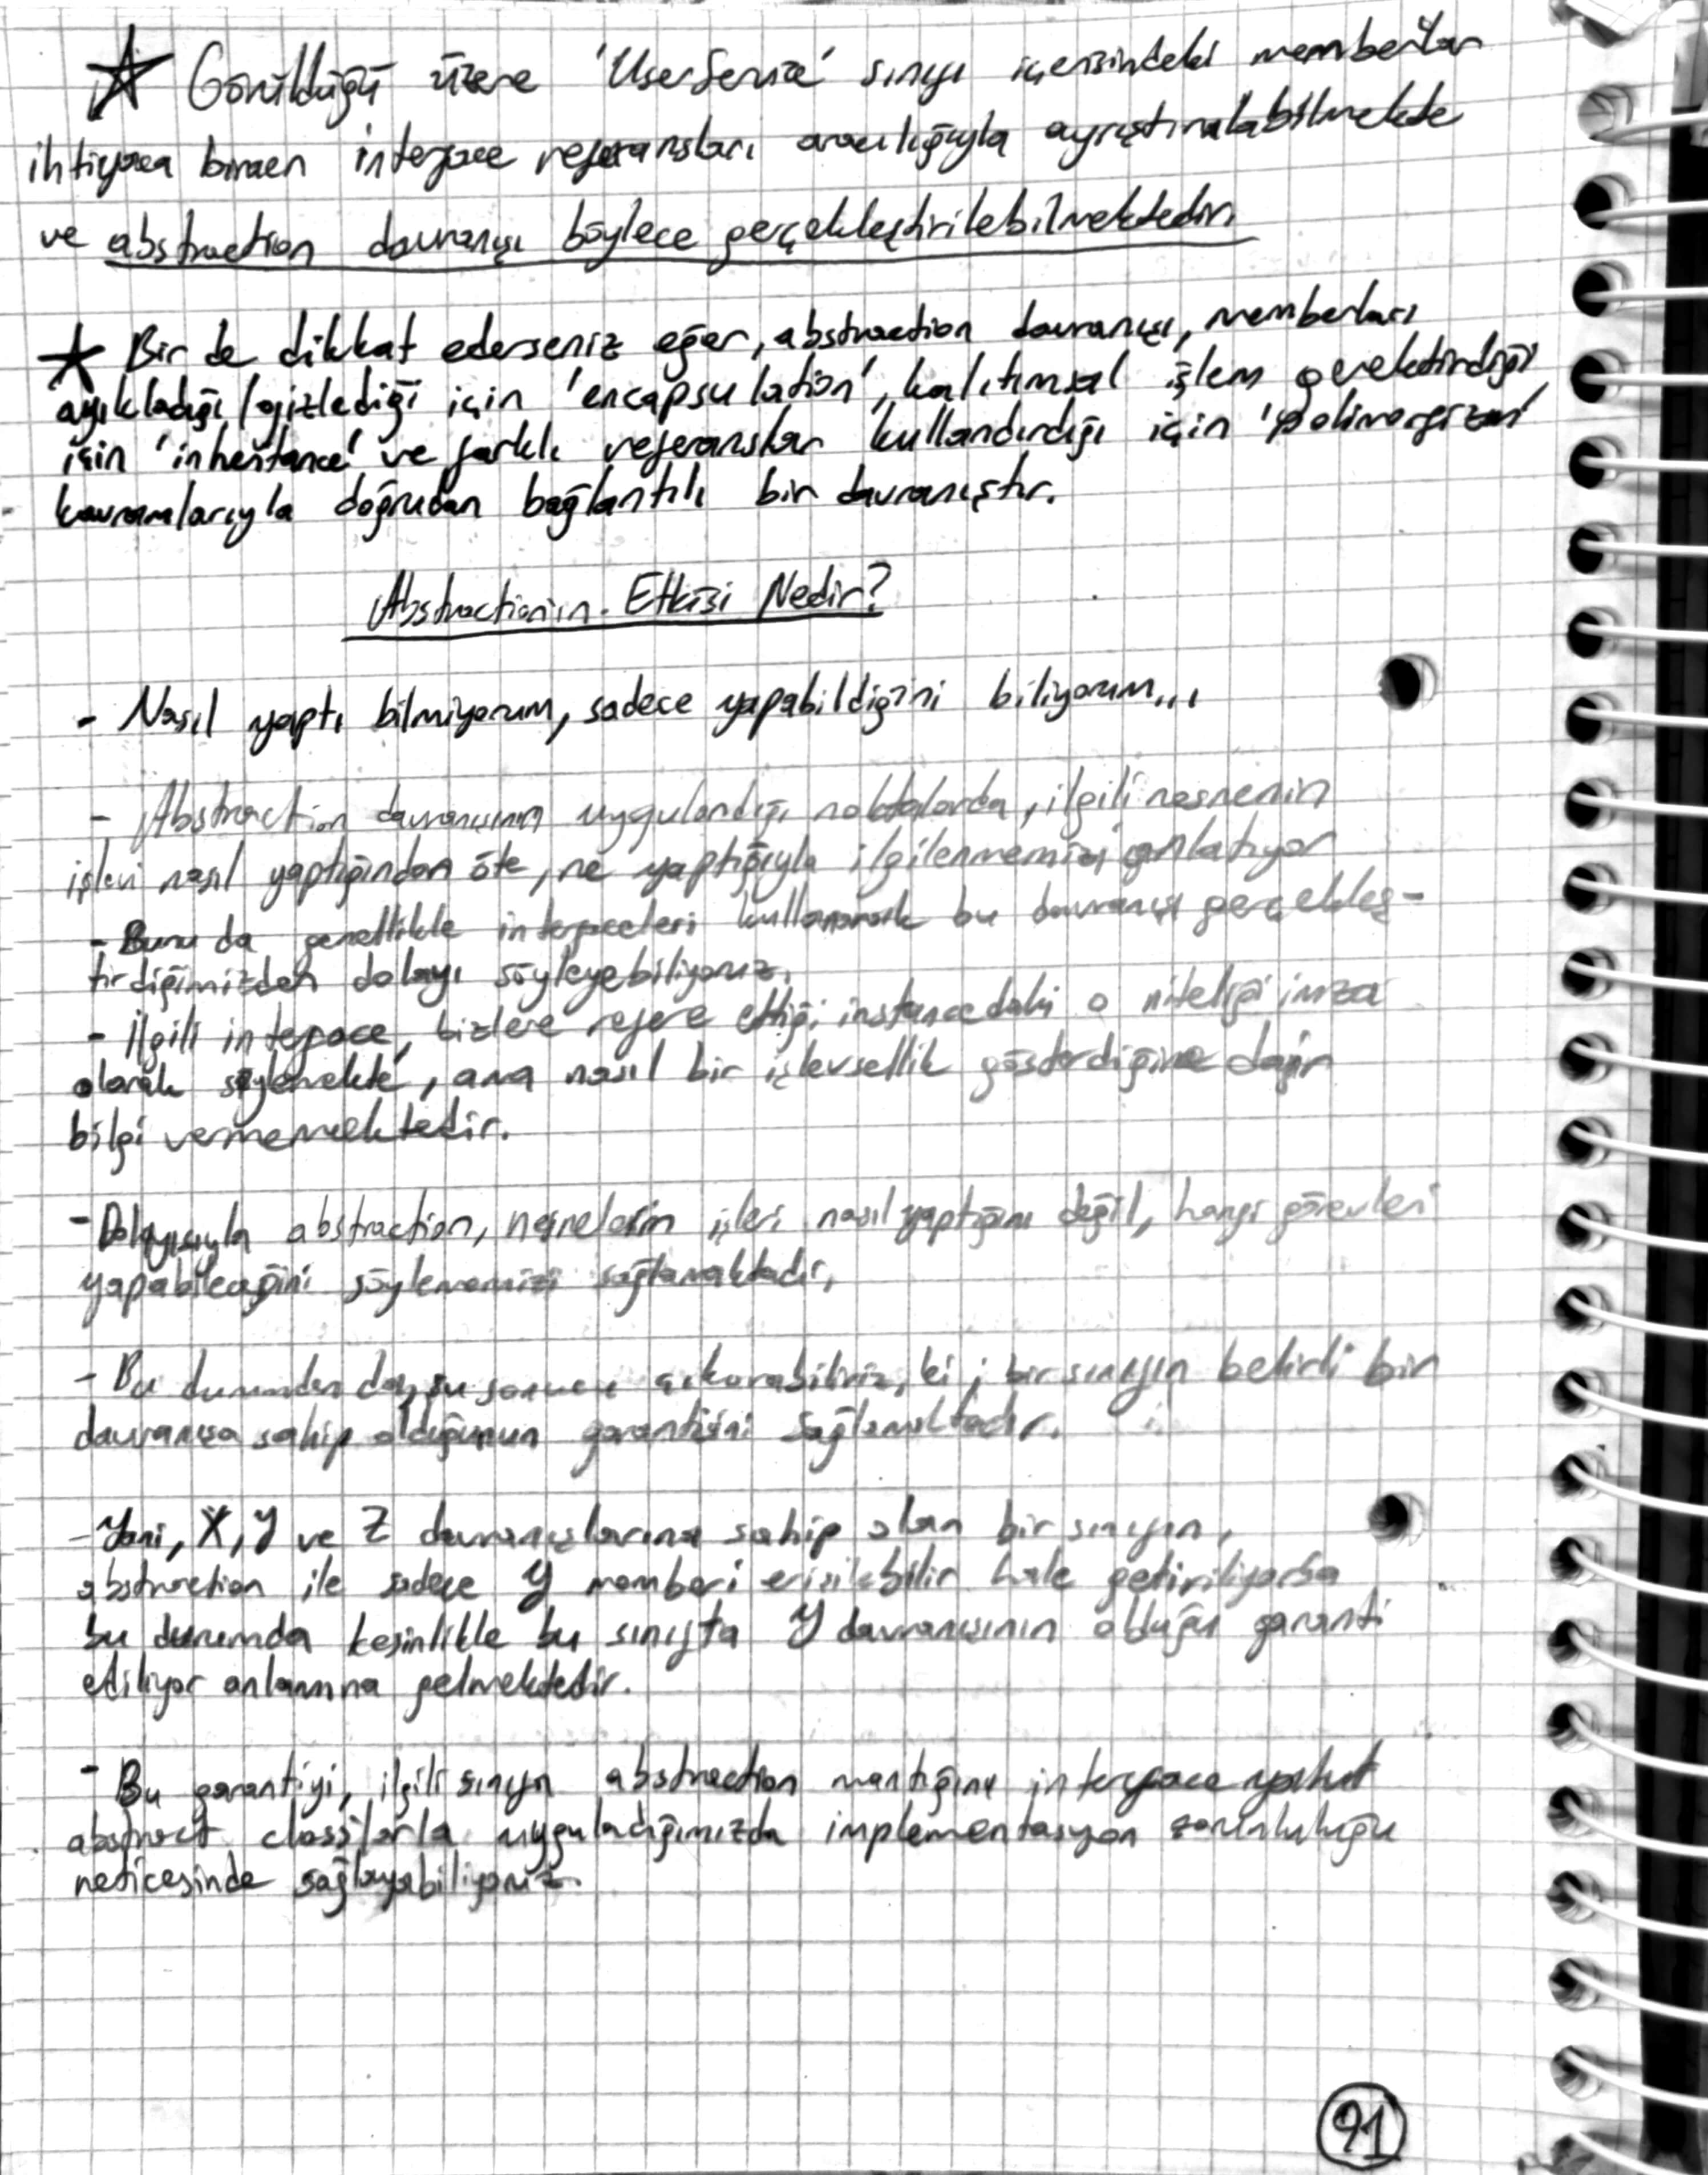 ☆ Görüldüğü üzere 'UserService' sınıfı içerisindeki memberlar
ihtiyaca binaen interface referansları aracılığıyla ayrıştırılabilmekte
ve abstraction davranışı böylece gerçekleştirilebilmektedir.
★ Bir de dikkat ederseniz eğer, abstraction davranışı, memberları
ayıkladığı/gizlediği için 'encapsulation', kalıtımsal işlem gerektirdiği
için 'inheritance' ve farklı referanslar kullandırdığı için 'polimorfizm'
kavramlarıyla doğrudan bağlantılı bir davranıştır.
Abstractionın Etkisi Nedir?
- Nasıl yaptı bilmiyorum, sadece yapabildiğini biliyorum...
- Abstraction davranışının uygulandığı noktalarda, ilgili nesnenin
işlevi nasıl yaptığından öte, ne yaptığıyla ilgilenmemizi anlatıyor
- Bunu da genellikle interfaceleri kullanarak bu davranışı gerçekleş-
tirdiğimizden dolayı söyleyebiliyoruz.
- İlgili interface, bizlere refere ettiği instancedaki o niteliği imza
olarak söylemekte, ama nasıl bir işlevsellik gösterdiğine dair
bilgi vermemektedir.
- Dolayısıyla abstraction, nesnelerin işleri nasıl yaptığını değil, hangi görevleri
yapabileceğini söylememizi sağlamaktadır.
- Bu durumdan da şu sonucu çıkarabiliriz, ki ; bir sınıfın belirli bir
davranışa sahip olduğunun garantisini sağlamaktadır.
- Yani, X, Y ve Z davranışlarına sahip olan bir sınıfın,
abstraction ile sadece Y memberi erişilebilir hale getiriliyorsa
bu durumda kesinlikle bu sınıfta Y davranışının olduğu garanti
ediliyor anlamına gelmektedir.
- Bu garantiyi, ilgili sınıfın abstraction mantığını interface yahut
abstract classlarla uyguladığımızda implementasyon zorunluluğu
neticesinde sağlayabiliyoruz.
91